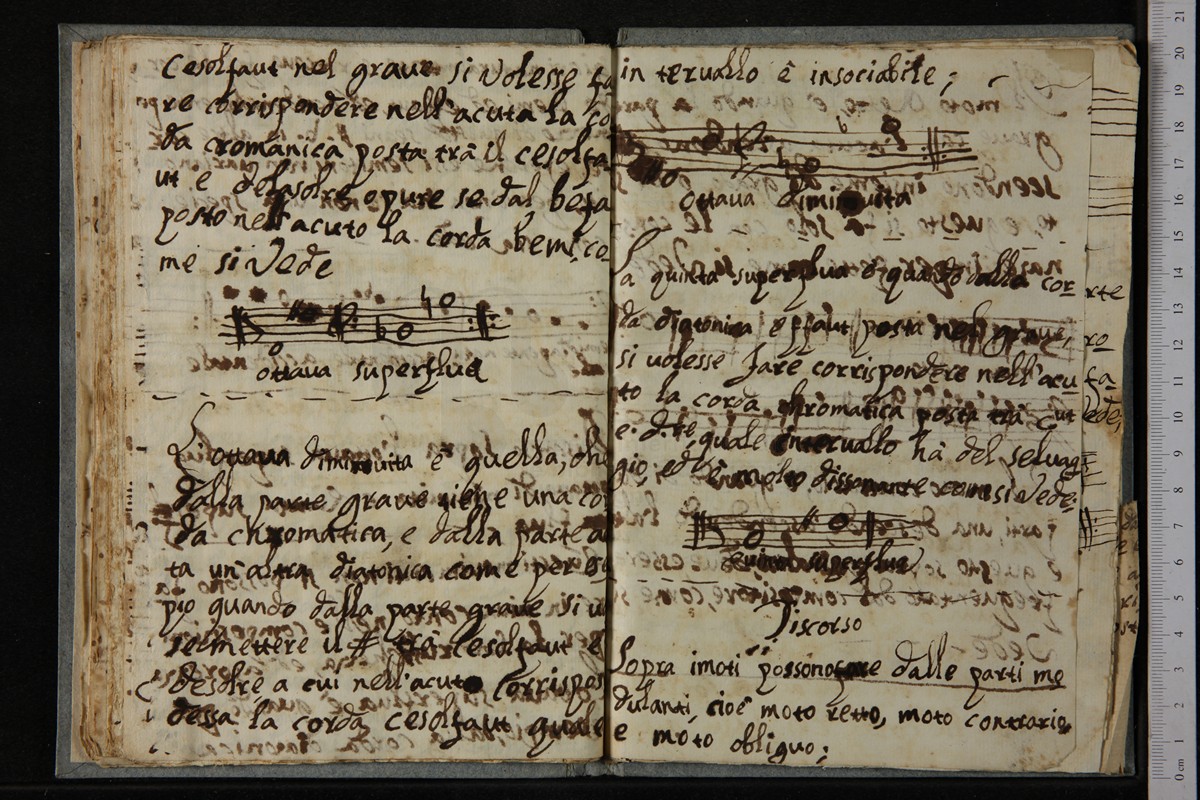 Cesolfaut nel graue si Volesse fa
re corrispondere nell'acuta la co
da cromanica posta trà il cesolfa
ut e delasolre opure se dal befa
posto nell'acuto la corda bemi, co
me si Vede
ottaua superflua
L'ottaua diminuita è quella, che
dalla parte graue viene una cor
da chromatica, e dalla parte a
ta un'altra diatonica come per es
pio quando dalla parte graue si u
se mettere il # trà Cesolfaut e
desolre a cui nell'acuto corrispon
dessa la corda cesolfaut quale
interuallo è insociabile;
ottaua diminuita
La quinta superflua è quando dalla cor
da diatonica effaut posta nel graue,
si uolesse fare corrispondere nell'acu
to la corda chromatica posta trà Cut
e d.re, quale interuallo hà del seluag
gio, ed è molto dissonante come si Vede;
quinta superflua
Discorso
Sopra i moti possono fare dalle parti mo
dulanti, cioè moto retto, moto contrario,
e moto obliguo;
21
20
19
18
17
16
15
14
13
12
11
10
9
8
7
6
5
4
3
2
1
0 cm